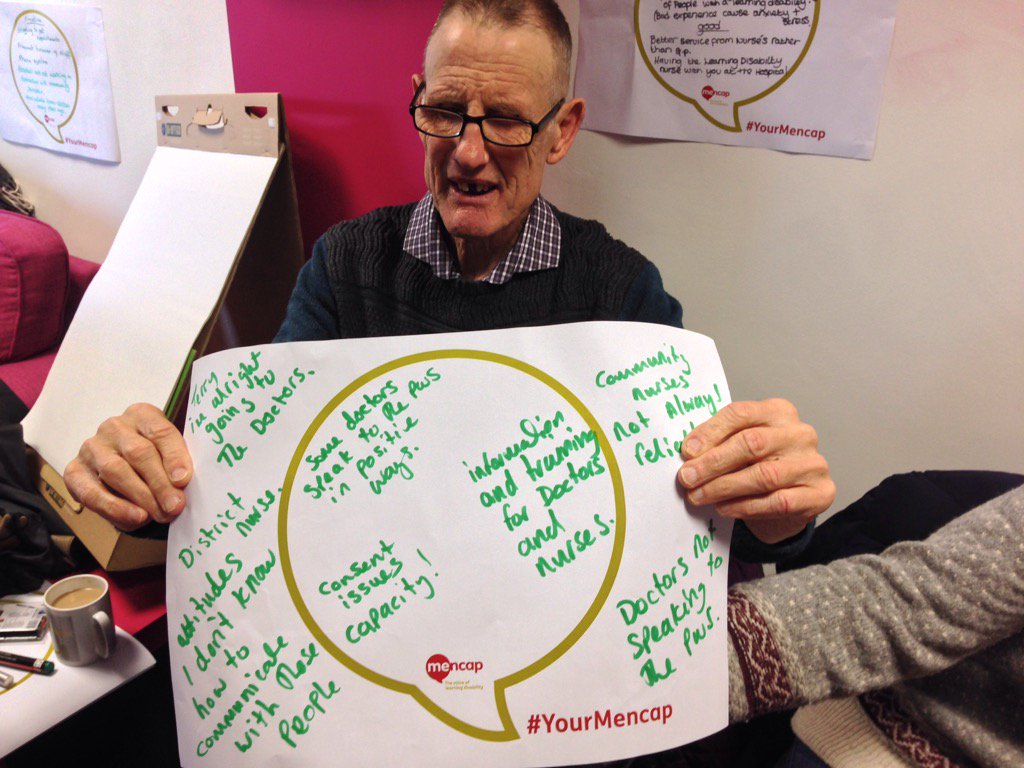 of People with a learning disability.
(Bad experience cause anxiety +
stress.
good
Better service from Nurse's rather
than G.P.
Having the Learning Disability
nurse with you at the Hospital
mencap
#YourMencap
#YourMencap
Terry
i'm alright
going to
The Doctors.
Some doctors
speak to the PWS
in positive
ways.
information
and training
for Doctors
and
nurses.
Community
nurses
not always
District
nurse.
attitudes
I don't know
how to
communicate
with these
People
Consent
issues
capacity!
Doctors not
speaking to
The PWS.
mencap
The voice of
learning disability
#YourMencap